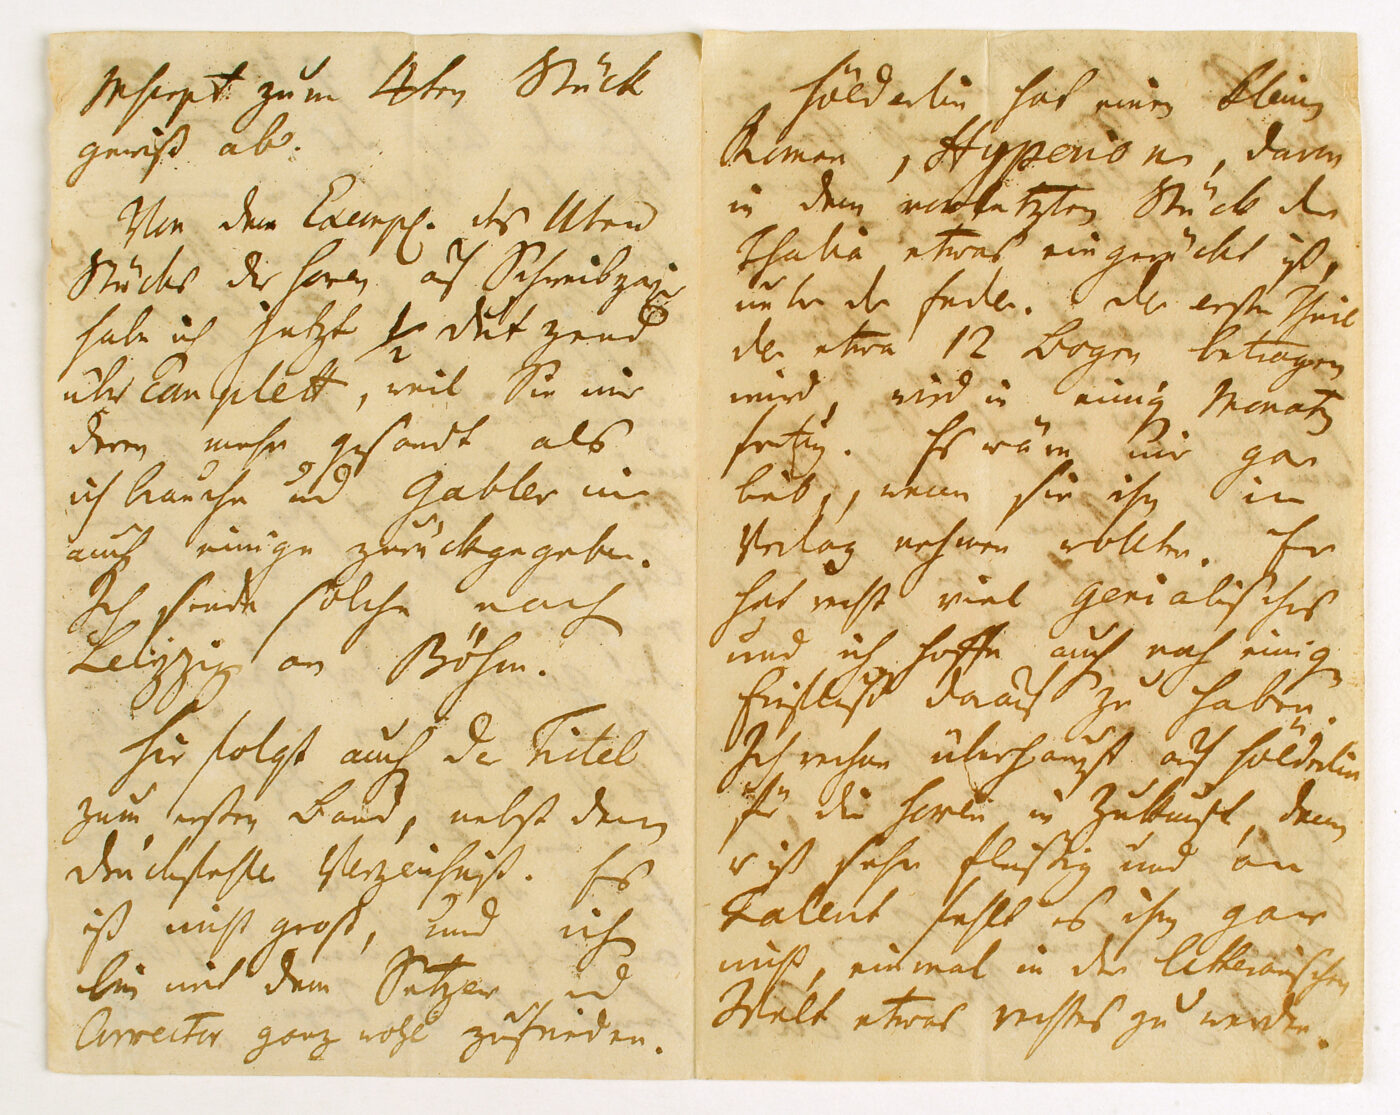 Mscrpt zum 4ten Stück
gewiß ab.
Von dem Exempl. des IIten
Stücks der Horen auf Schreibpapier
habe ich jetzt 1/2 Dutzend
über complett, weil Sie mir
deren mehr gesandt als
ich brauche und Gabler mir
auch einige zurückgegeben.
Ich sende solche nach
Leipzig an Böhm.
Hier folgt auch der Titel
zum ersten Band, nebst dem
Druckfehler Verzeichniß. Es
ist nicht groß, und ich
bin mit dem Setzer und
Corrector ganz wohl zufrieden.
Hölderlin hat einen kleinen
Roman, Hyperion, davon
in dem vorletzten Stück der
Thalia etwas eingerückt ist,
unter der Feder. Der erste Theil
der etwa 12 Bogen betragen
wird, wird in einigen Monaten
fertig. Es wäre mir gar
lieb, wenn Sie ihn in
Verlag nehmen wollten. Er
hat recht viel genialisches
und ich hoffe auch noch einigen
Einfluß darauf zu haben.
Ich rechne überhaupt auf Hölderlin
für die Horen in Zukunft, denn
er ist sehr fleissig und an
Talent fehlt es ihm gar
nicht, einmal in der litterarischen
Welt etwas rechtes zu werden.